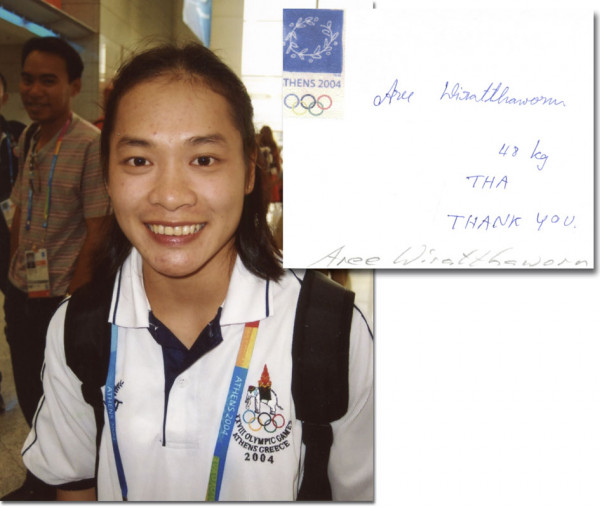 ATHENS 2004
Aree Wiratthaworn
48 kg
THA
THANK YOU.
Aree Wiratthaworn
ATHENS 2004
XXVIII OLYMPIC GAMES
ATHENS GREECE
2004